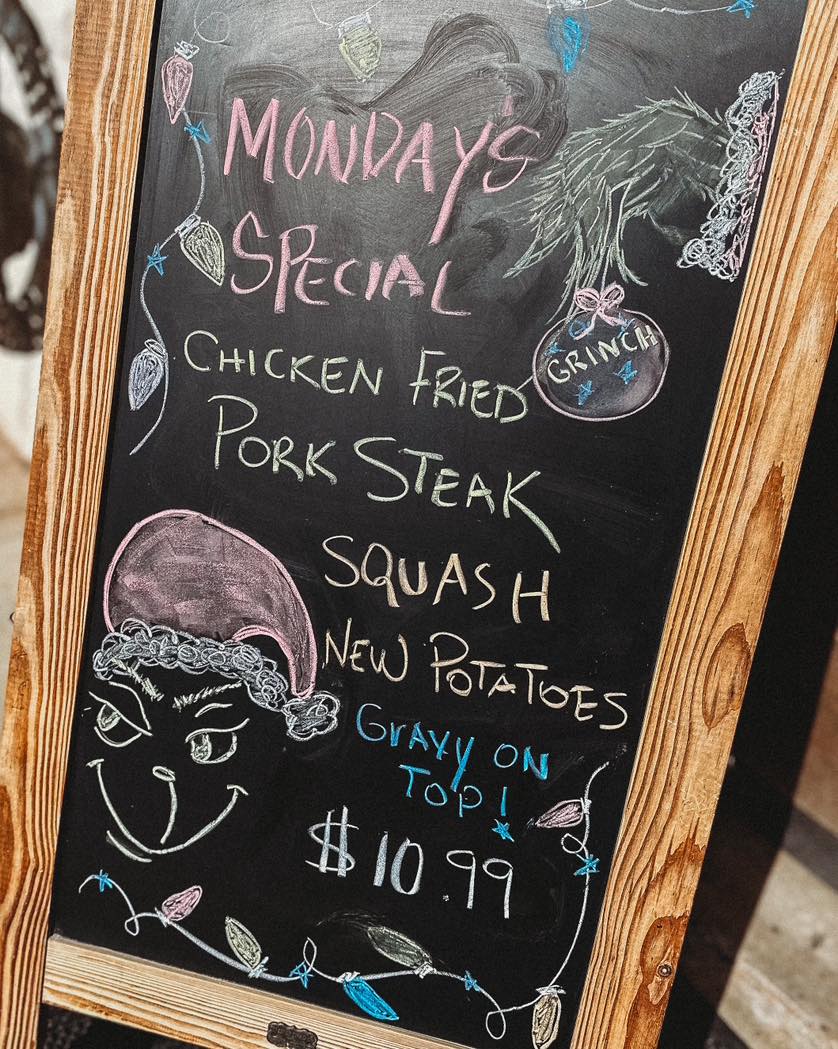 MONDAY'S
SPECIAL
GRINCH
CHICKEN FRIED
PORK STEAK
SQUASH
NEW POTATOES
GRAVY ON
TOP!
$10.99